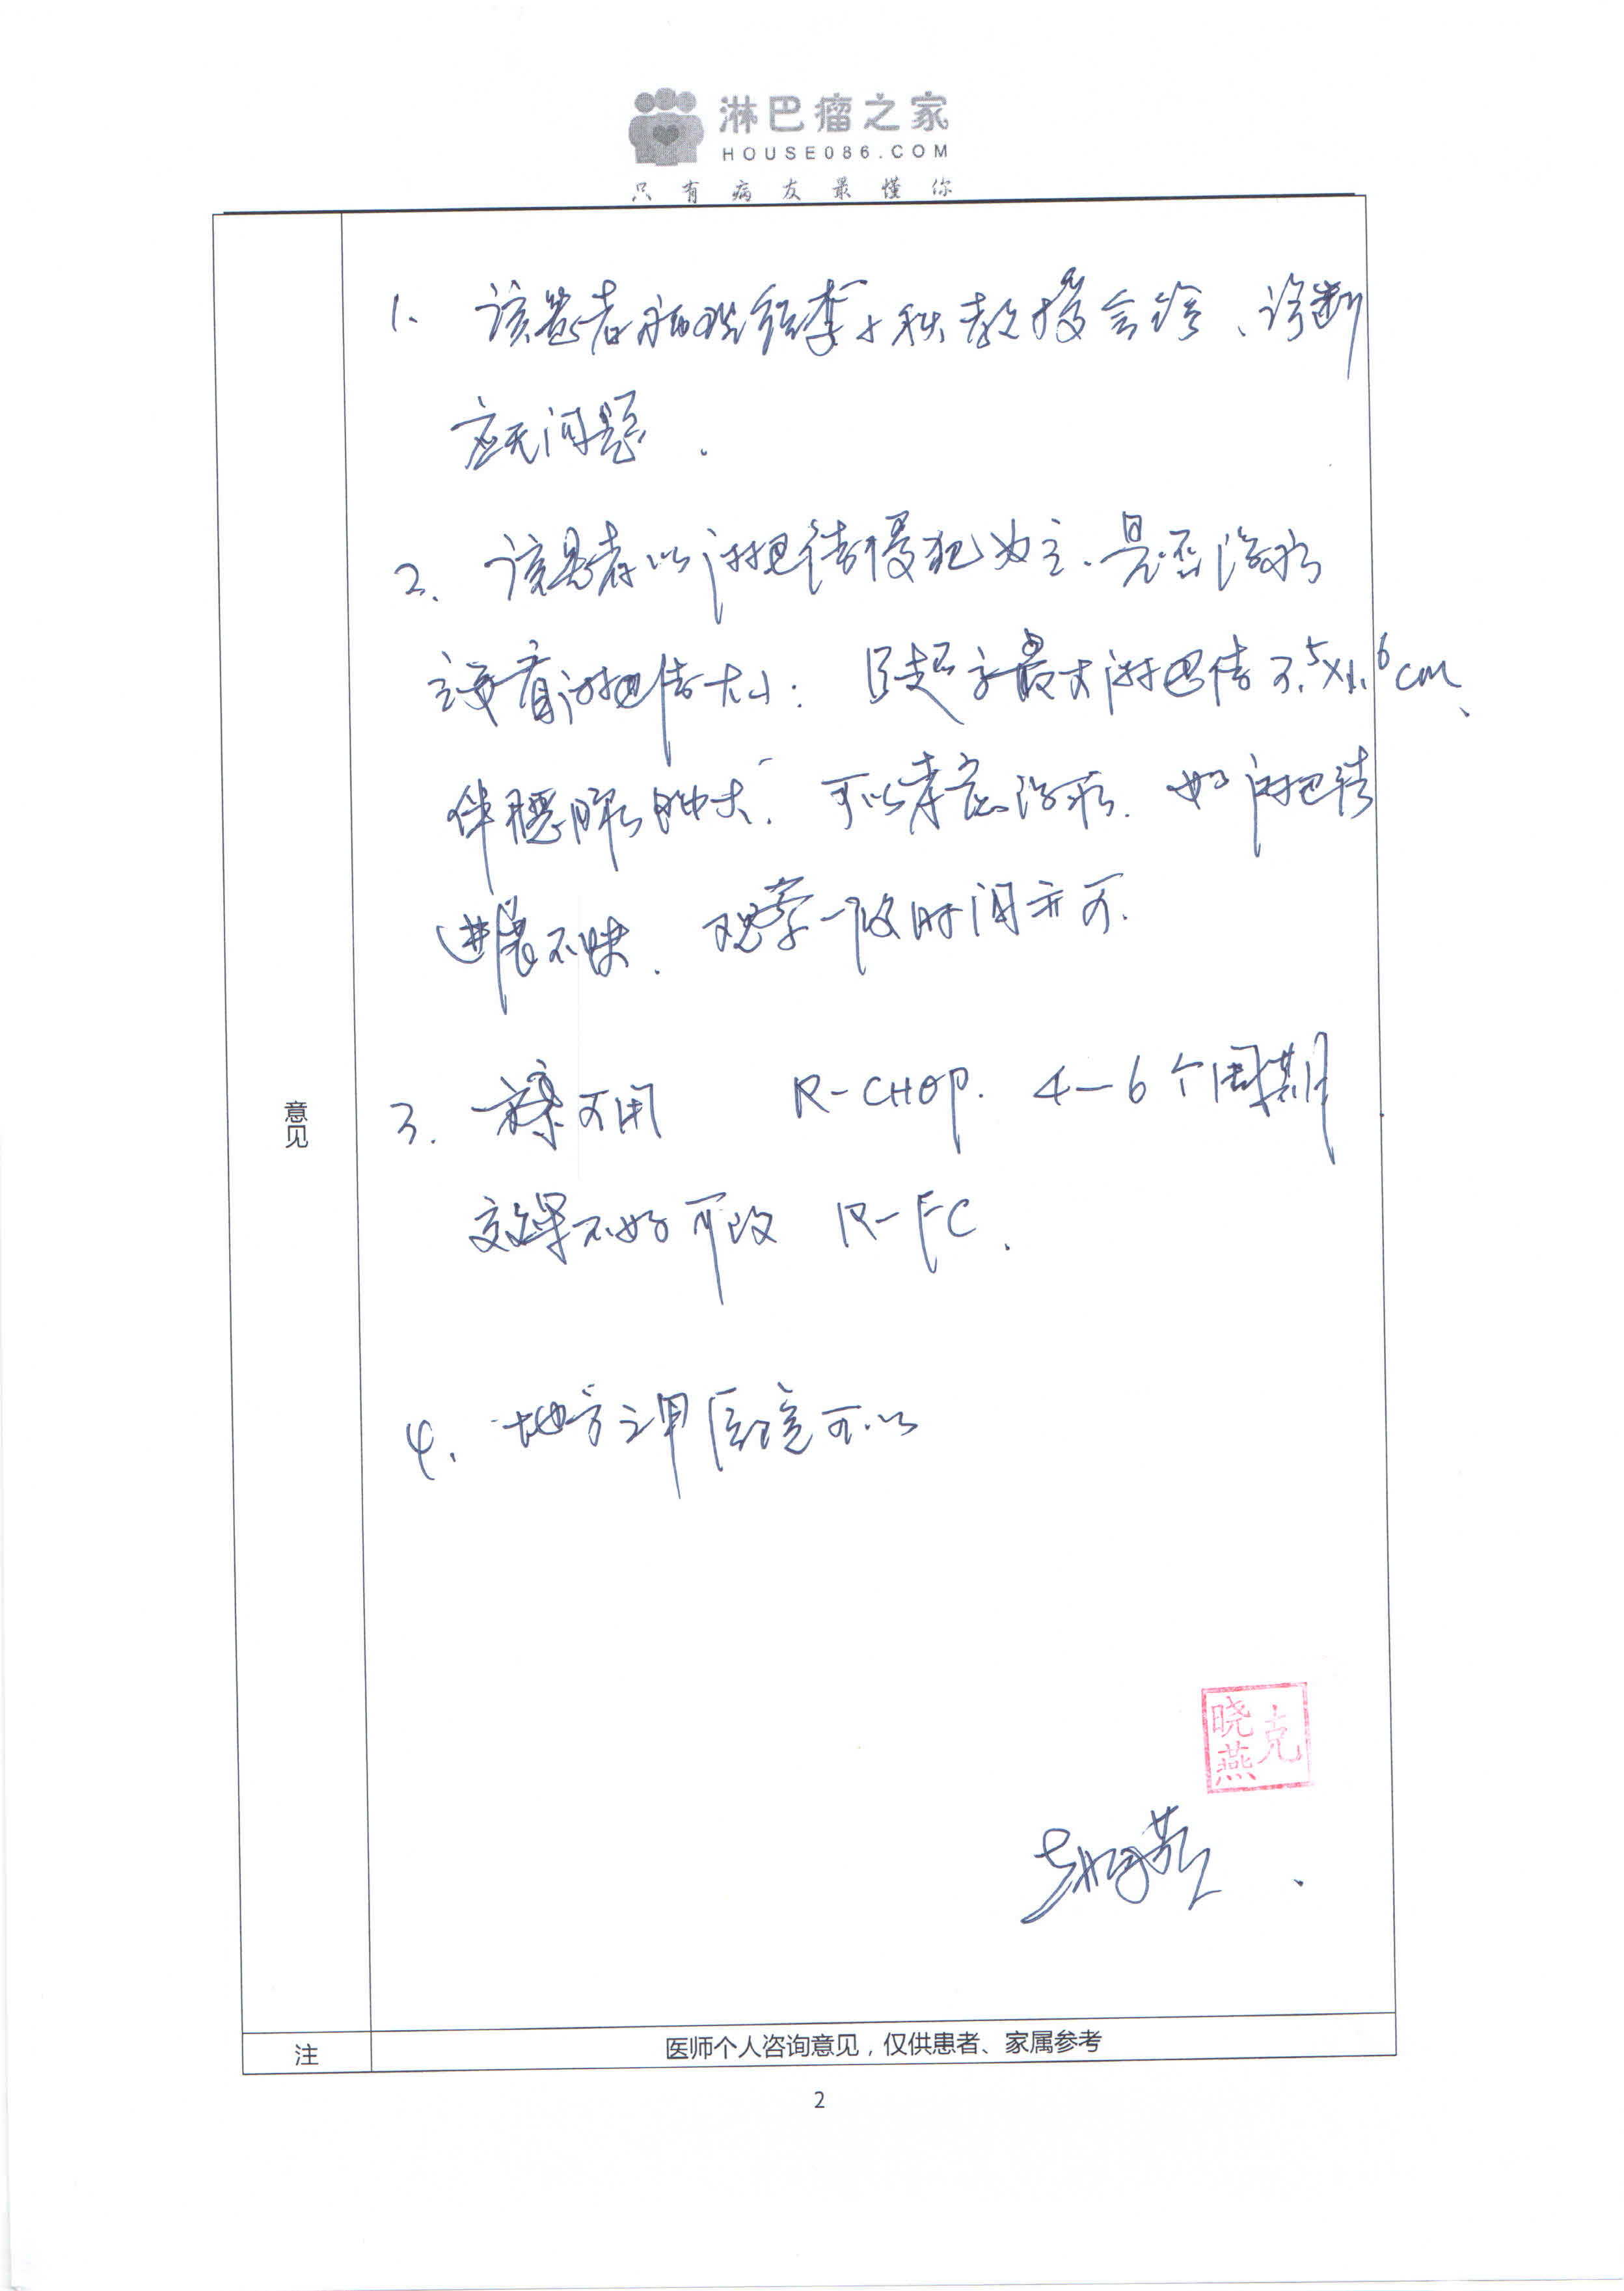 淋巴瘤之家
HOUSE086.COM
只有病友最懂你
意见
1. 该患者病理经李小秋教授会诊、诊断
应无问题.
2. 该患者以淋巴结侵犯为主.是否治疗
主要看淋巴结大小: B超示最大淋巴结
cm、
伴脾肿大.可以考虑治疗.如淋巴结
进展不快.观察一段时间亦可.
3. 方案可用 R-CHOP. 4-6个周期
效果不好可改 R-FC.
4. 地方三甲医院可以
晓燕
克
克晓燕.
注
医师个人咨询意见，仅供患者、家属参考
2